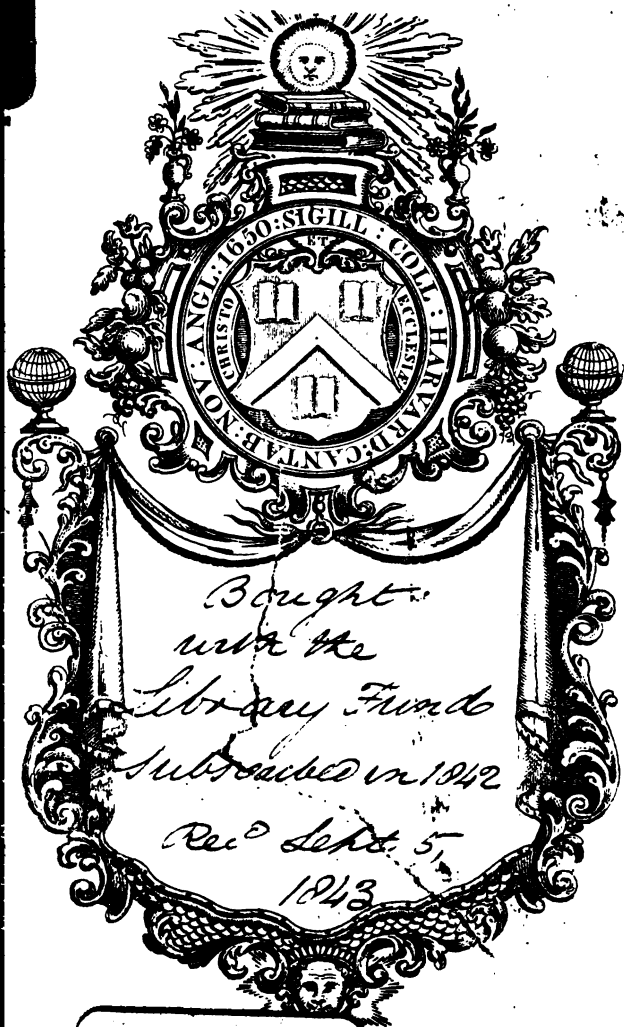 SIGILL : COLL : HARVARD: CANTAB: NOV: ANGL: 1650:
CHRISTO ET ECCLESIÆ
Bought
with the
Library Fund
subscribed in 1842
Recᵈ Sept. 5,
1843